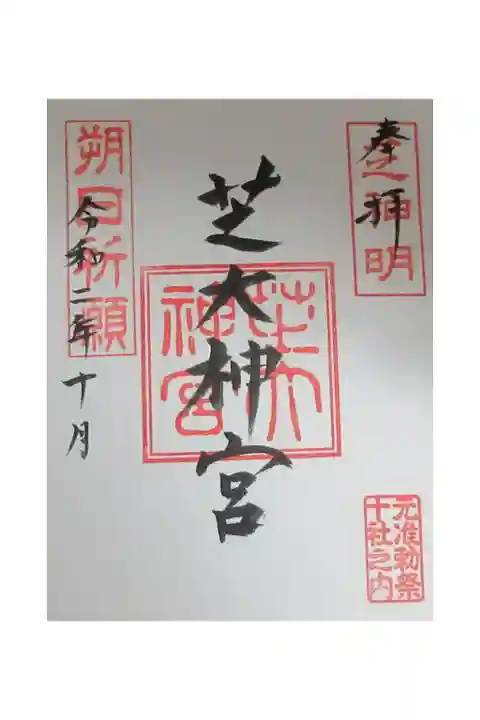 奉拝
芝神明
芝大神宮
芝大神宮
元准勅祭
十社之内
朔日祈願
令和二年十月